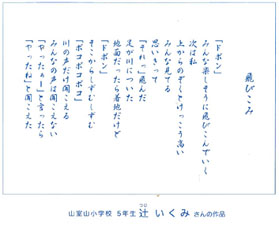 飛びこみ
「ドボン」
みんな楽しそうに飛びこんでいく
次は私
上からのぞくとけっこう高い
みんな見てる
思いきって
「それっ」飛んだ
足が川についた
地面だったら着地だけど
「ドボン」
そこからしずむしずむ
「ボコボコボコ」
川の声だけ聞こえる
みんなの声は聞こえない
「やったぁー」と言ったら
「やったね」と聞こえた
山室山小学校 5年生 辻 いくみ さんの作品
つじ